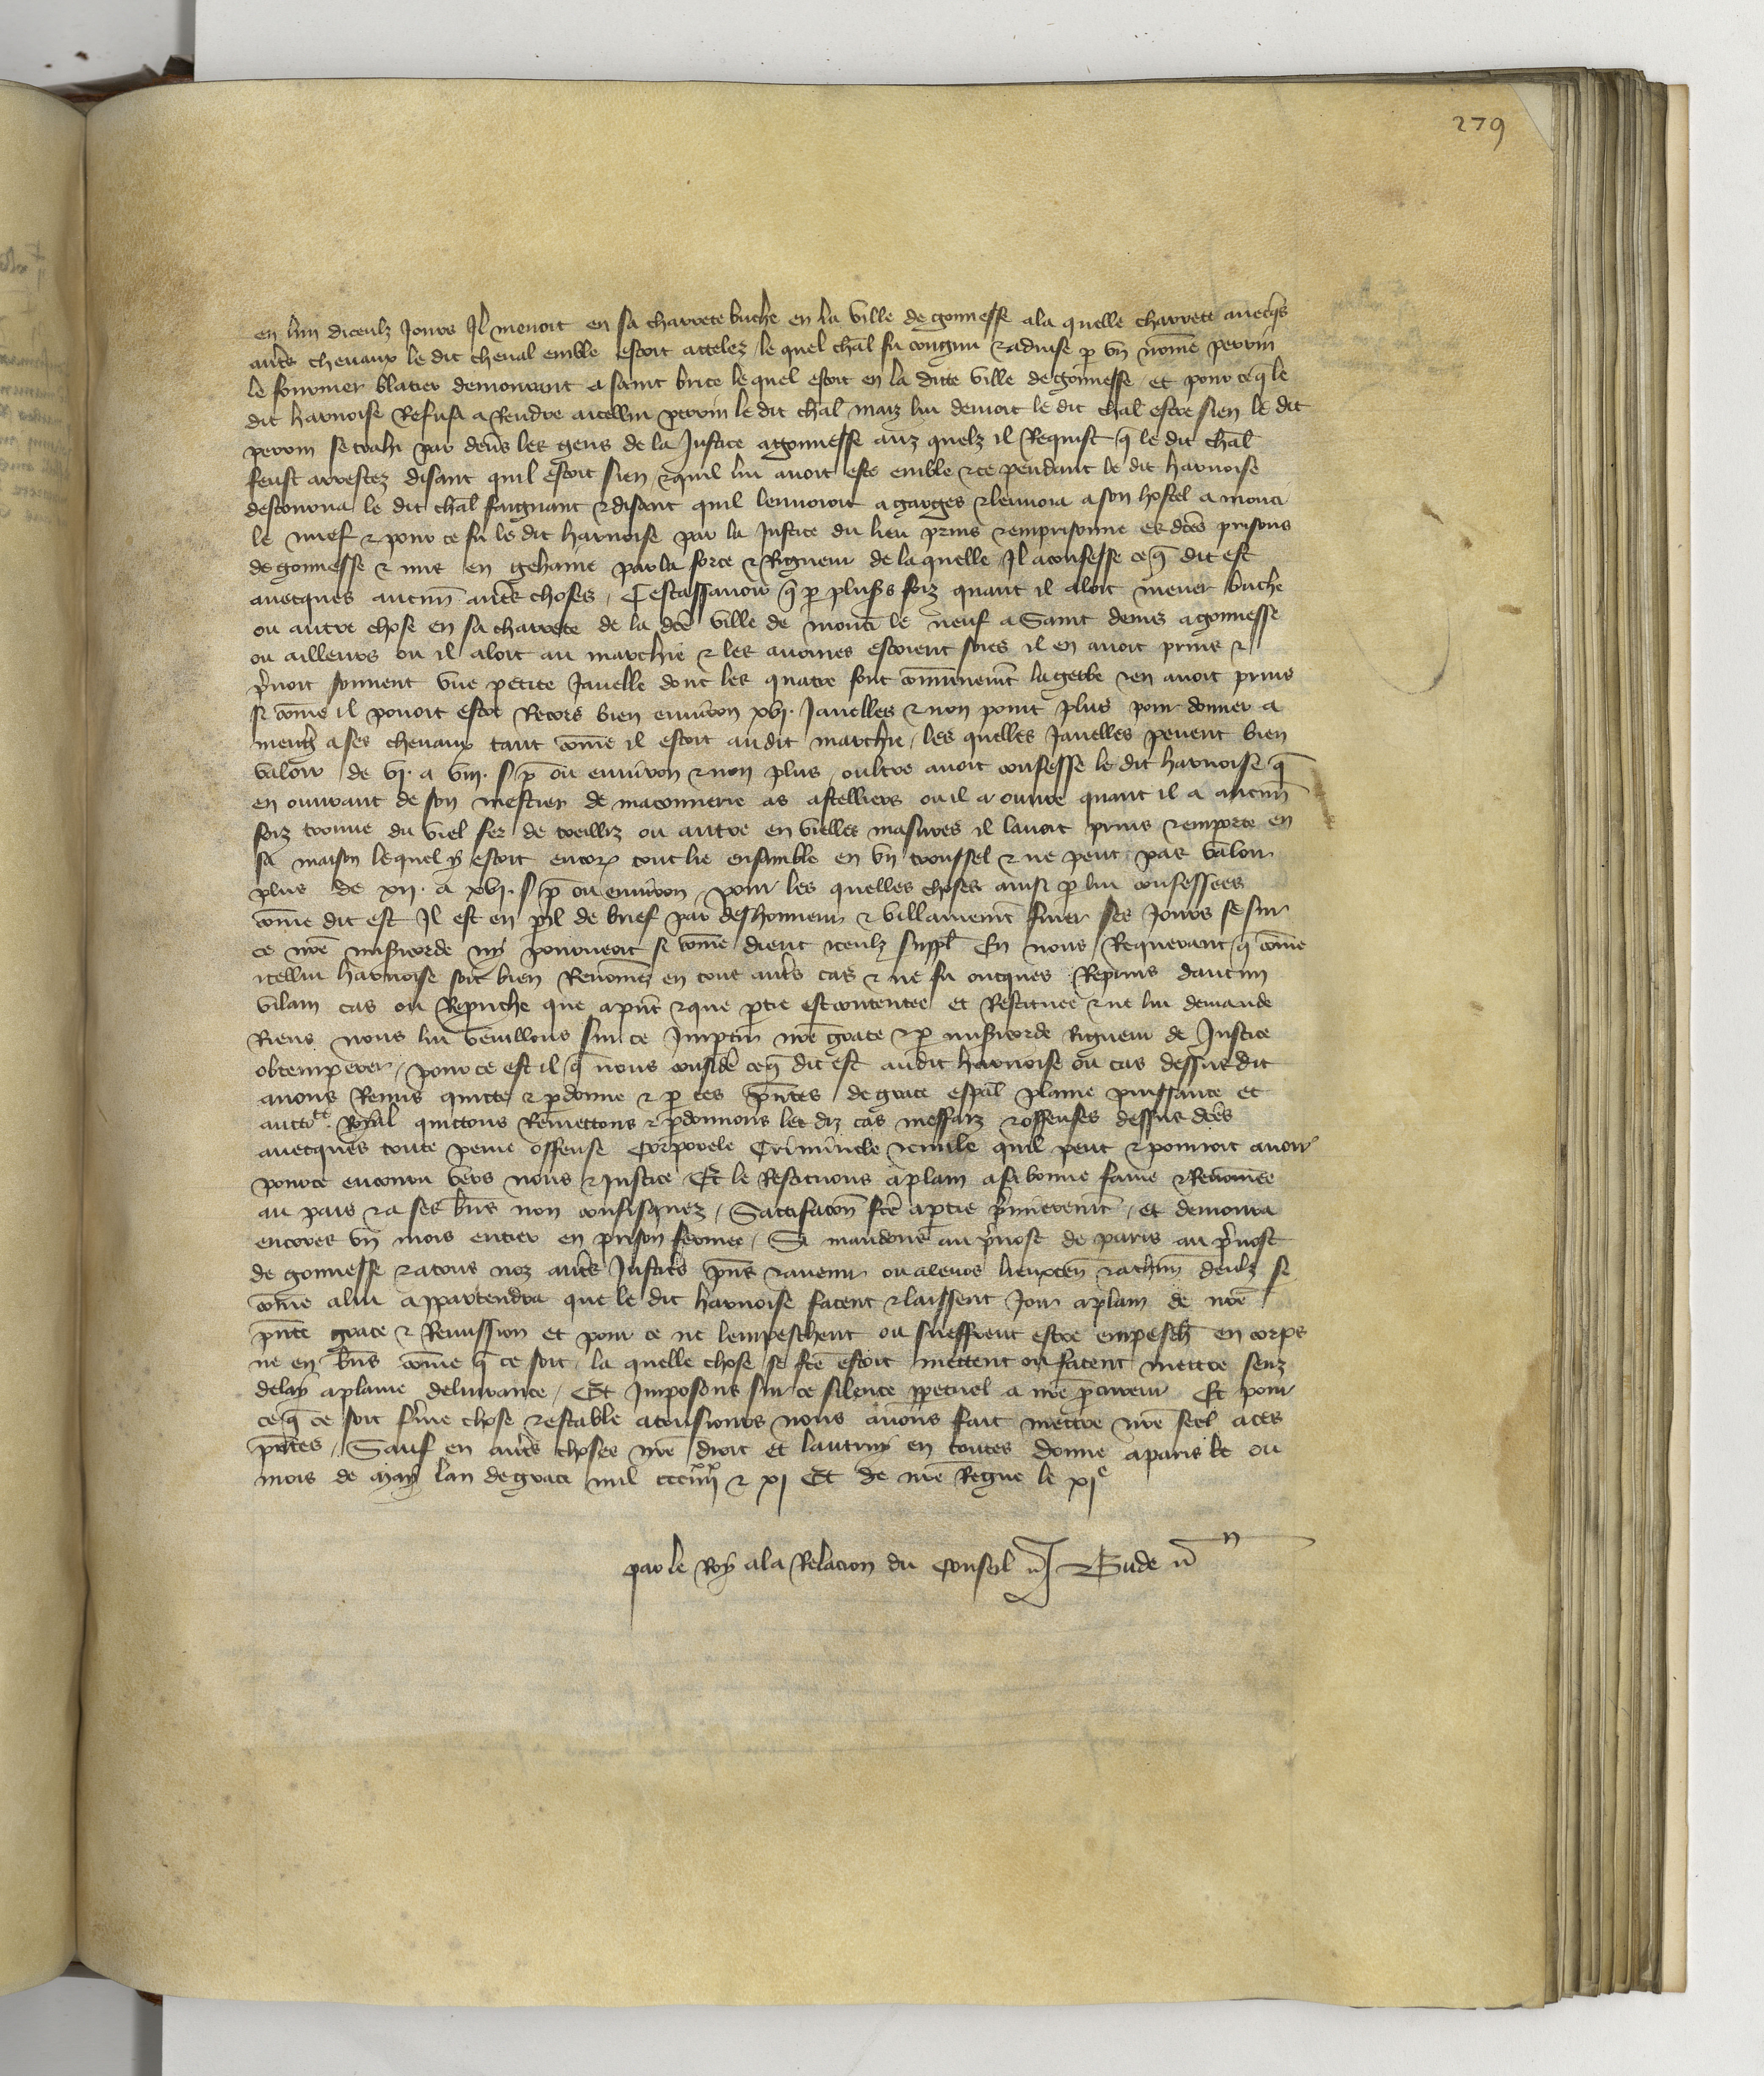 279
en lun diceulz jours Il menoit en sa charrete buche en la ville de gonnesse a la quelle charrete avecqs
autrs chevaux le dit cheval emble estoit attelez / le quel chal fu congnu & advise p un nome perrin
le fournier blatier demourant a saint brice lequel estoit en la ditte ville de gonnesse / et pour ce q le
dit harnoise Refusa a Rendre a icellui perrin le dit chal maiz lui devoit le dit chal estre sien le dit
perrin se trahi par devs les gens de la Justice a gonnesse auz quelz il Requist q le dit chal
feust arrestez disant quil estoit sien & quil lui avoit este emble & ce pendant le dit harnoise
destourna le dit chal faignant & disant quil lenvoioit a garges & lenvoia a son hostel a mouci
le nuef & pour ce fu le dit harnoise par la Justice du lieu prins & emprisonne es dces prisons
de gonnesse & mis en gehaine par la force & Rigueur de laquelle Il a confesse ce q dit est
avecques aucuns autrs choses / Cestassavoir q p plusrs foiz quant il aloit mener buche
ou autre chose en sa charrete de la dce ville de mouci le neuf a Saint denis a gonnesse
ou ailleurs ou il aloit au marchie & les avoines estoient soies il en avoit prins &
prnoit souvent une petite Javelle dont les quatre font communemt la gerbe & en avoit prins
si come il povoit estre Recors bien environ xvi. Javelles & non point plus pour donner a
meng a ses chevaux tant come il estoit audit marchie / les quelles Javelles pevent bien
valoir de vi. a viii. s p ou environ & non plus / oultre avoit confesse le dit harnoise q
en ouvrant de son mestier de maconnerie as astelliers ou il a ouvre quant il a aucun
foiz trouve du viel fer de treilliz ou autre en vielles masures il lavoit prins & emporte en
sa maison lequel y estoit encor tout lie ensemble en un troussel & ne peut pas valoir
plus de xii. a xvi. s p ou environ / pour les quelles choses ainsi p lui confessees
come dit est Il est en pil de brief par deshonneur & villainemt finer ses jours se sur
ce nre misicorde ny pourveoit si come dient iceulz suppl En nous Requerant q come
icellui harnoise soit bien Renomez en tous autrs cas & ne fu oncques Reprins daucun
vilain cas ou Repruche que a pnt & que ptie est contentee et Restituee & ne lui demande
Riens nous lui veuillons sur ce Impartir nre grace & p misicorde Rigueur de Justice
obtemperer / pour ce est il q nous consider ce q dit est audit harnoise ou cas dessusdit
avons Remis quitte & pdonne & p ces pntes de grace espal plaine puissance et
auctte Royal quittons Remettons & pdonnons les diz cas meffaiz & offenses dessus dces
avecques toute peine offense Corporele Criminele & civile quil peut & pourroit avoir
pour ce encouru vers nous & justice Et le Restituons a plain a sa bonne fame & Renomee
au pais & a ses bns non confisquez / Sattifacon fce a ptie prmierement / et demoura
encores un mois entier en prison fermee / Si mandons au prvost de paris au prvost
de gonnesse & a tous noz autrs Justicrs pns & avenir ou a leurs lieuxten & a chun deulz si
come a lui appartendra que le dit harnoise facent & laissent Joir a plain de nre
pnte grace & Remission et pour ce ne lempeschent ou sueffrent estre empesch en corps
ne en bns come q ce soit / la quelle chose se fce estoit mettent ou facent mettre senz
delay a plaine delivrance / Et Imposons sur ce silence ppetuel a nre pcureur Et pour
ce q ce soit frme chose & estable a tousjours nous avons fait mettre nre seel a ces
pntes / Sauf en autrs choses nre droit et lautruy en toutes donne a paris le ou
mois de may lan de grace mil ccc iiiixx & xi Et de nre Regne le xie
par le Roy a la Relacion du Conseil Bude